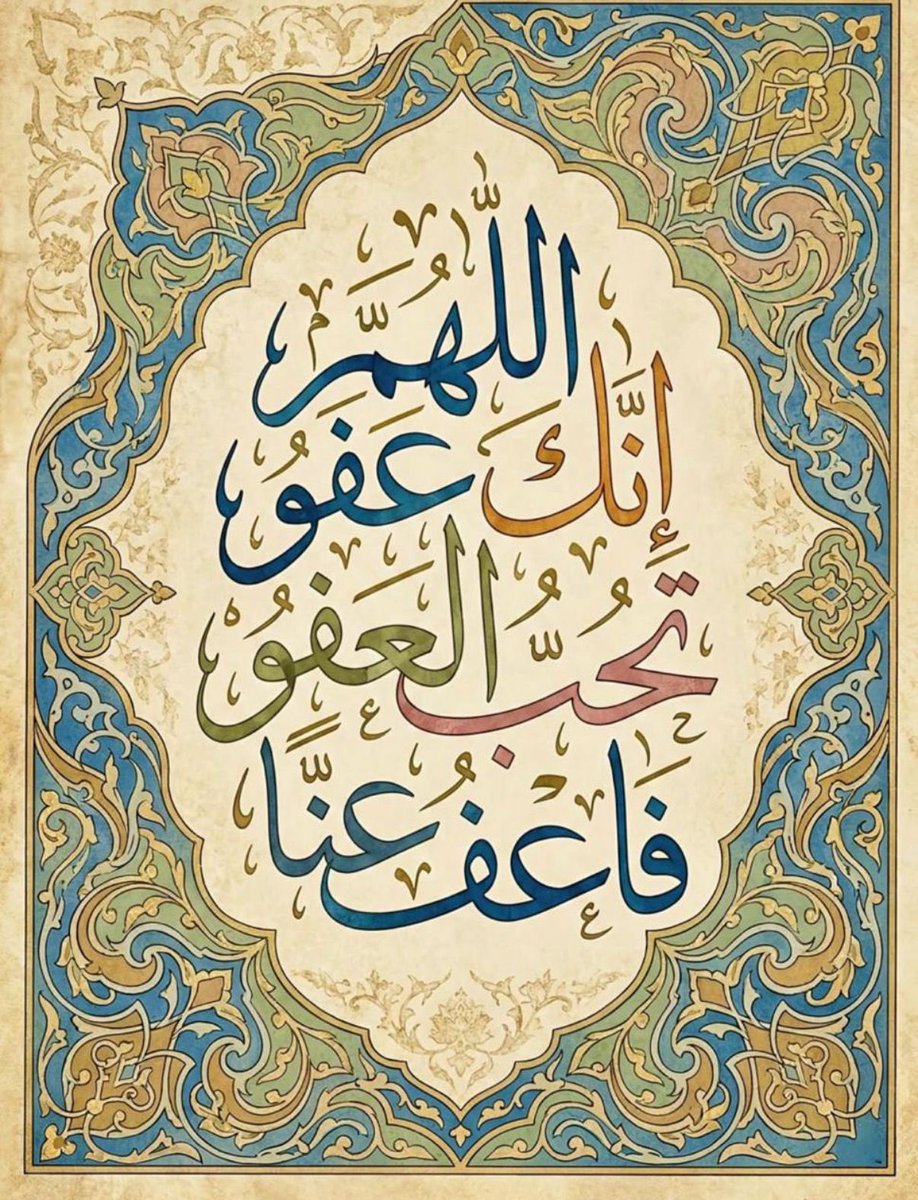 اللهمّ
إنّك عفو
تحبّ العفو
فاعف عنّا